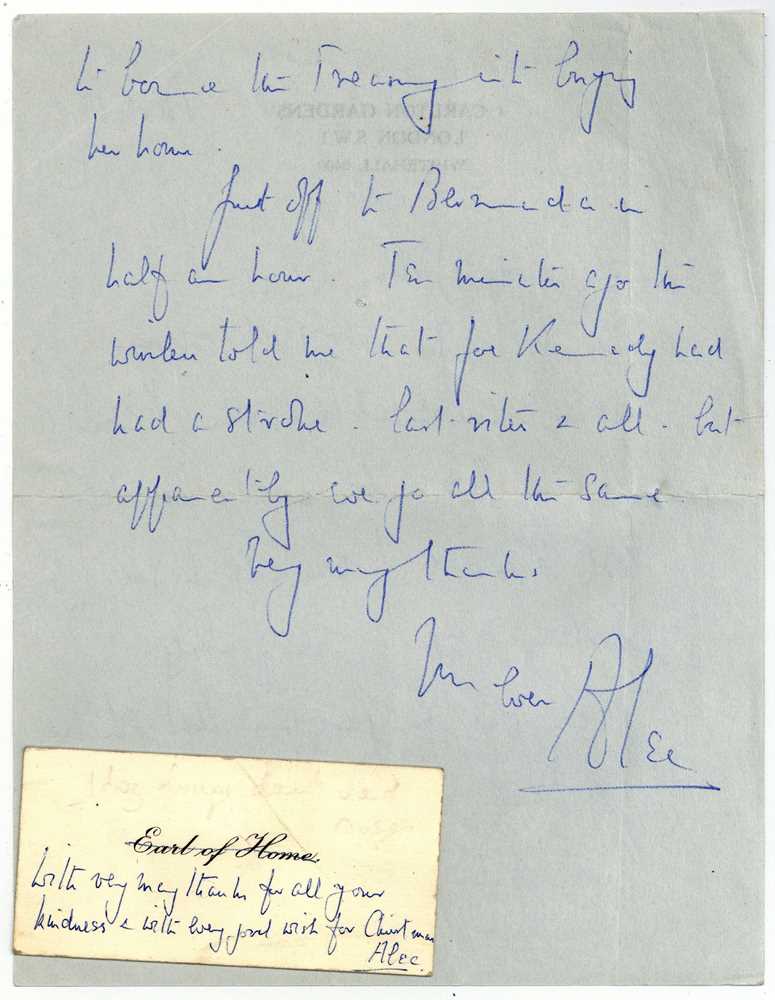 to bounce the Treasury into buying
her home.
Just off to Bermuda in
half an hour. Ten minutes ago the
wireless told me that Joe Kennedy had
had a stroke. last rites & all. but
apparently we go all the same.
Very many thanks
Yrs ever Alec
Earl of Home.
With very many thanks for all your
kindness & with every good wish for Christmas
Alec.
CARLTON GARDENS
LONDON S.W.1
WHITEHALL